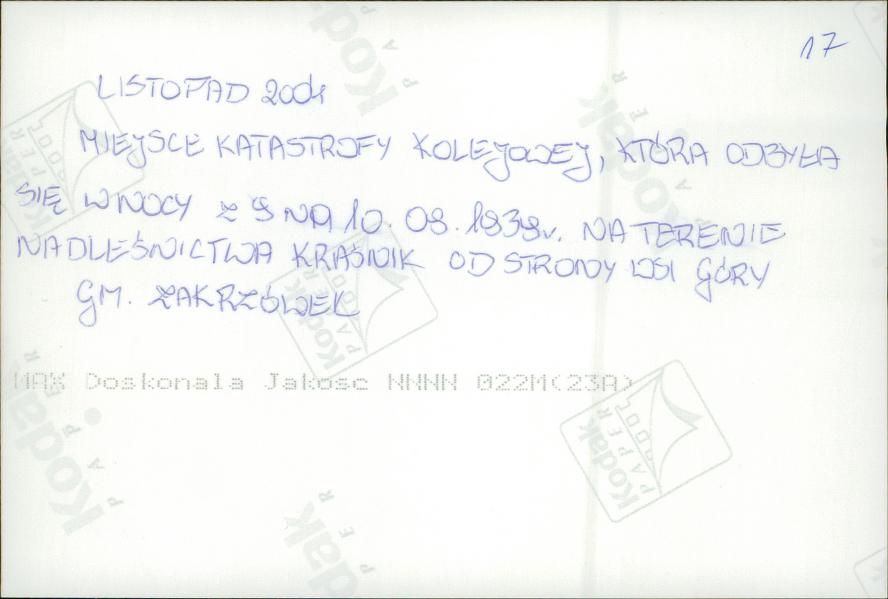 17
LISTOPAD 2004
MIEJSCE KATASTROFY KOLEJOWEJ, KTÓRA ODBYŁA
SIĘ W NOCY Z 9 NA 10. 09. 1939r. NA TERENIE
NADLEŚNICTWA KRAŚNIK OD STRONY WSI GÓRY
GM. ZAKRZÓWEK
MAX Doskonala Jakosc NNNN 022M(23A)
Kodak
PAPER
Kodak
PAPER
Kodak
PAPER
Kodak
PAPER
Kodak
PAPER